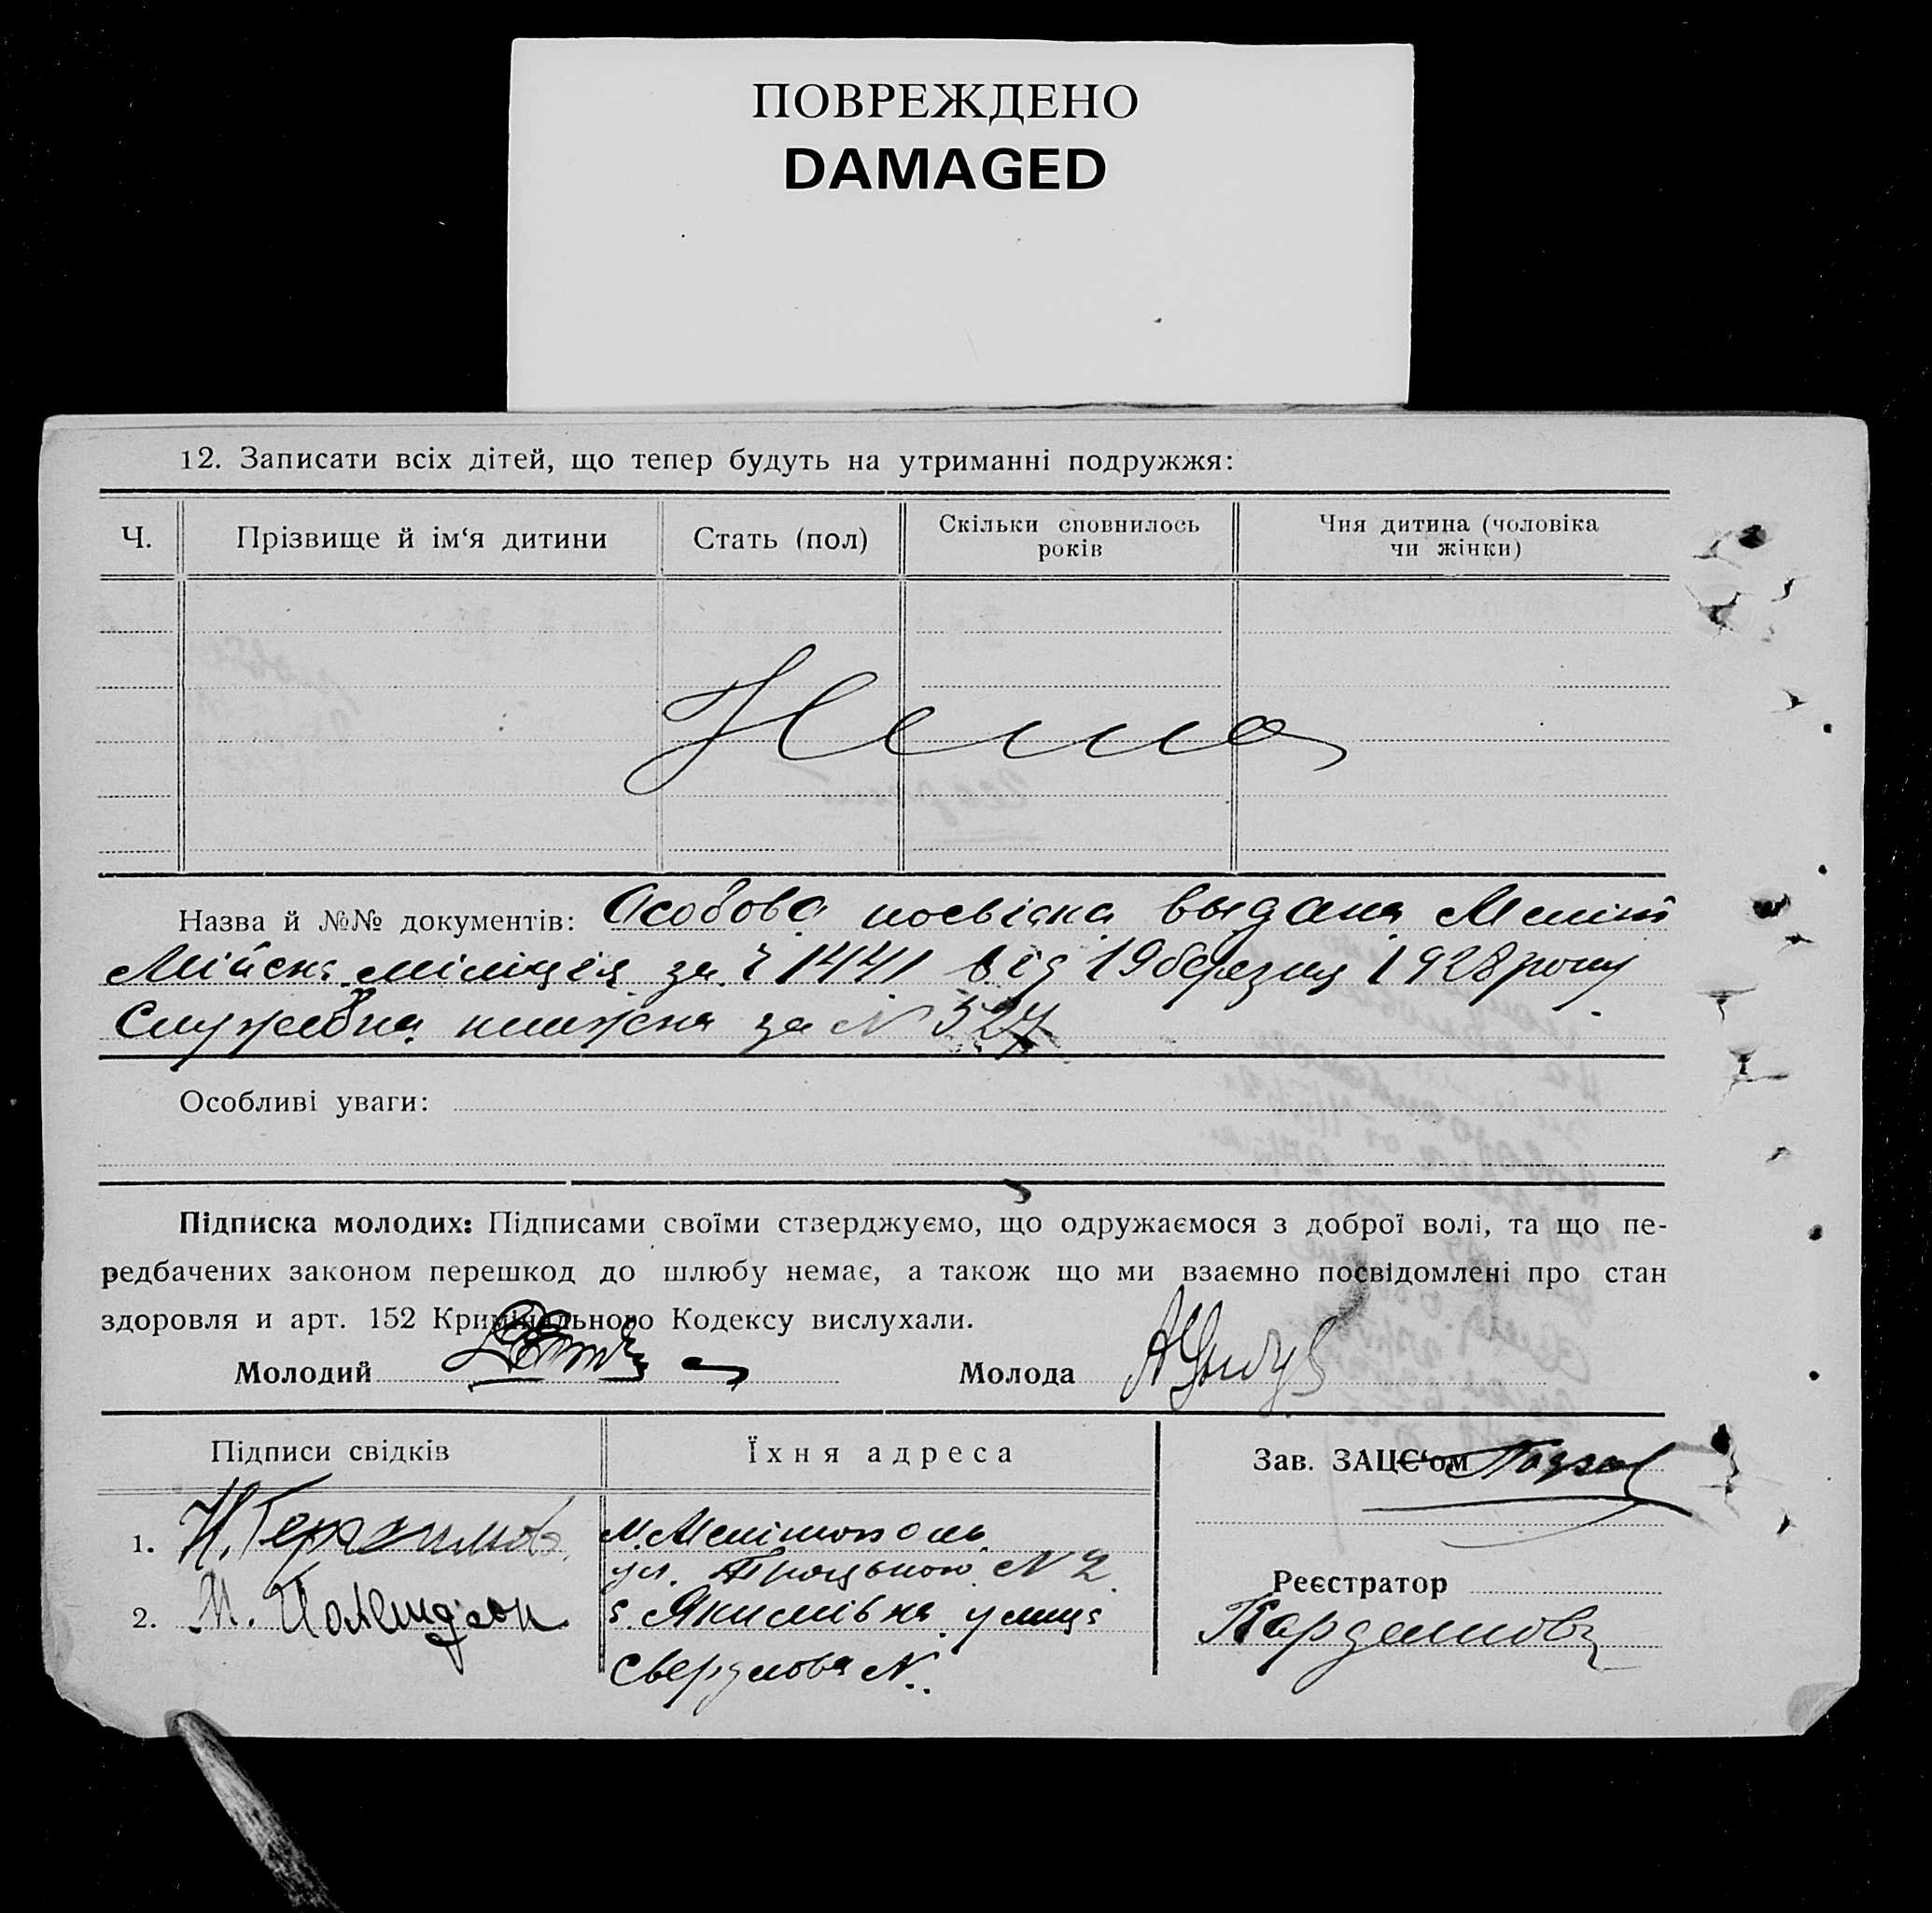 ПОВРЕЖДЕНО
DAMAGED
12. Записати всіх дітей, що тепер будуть на утриманні подружжя:
Ч. Прізвище й ім‘я дитини Стать (пол) Скільки сповнилось років Чия дитина (чоловіка чи жінки)
Нема
Назва й №№ документів: Особова посвідка выдана Меліт
Мійська міліція за ч 1441 від 19 березня 1928 року
Службова книжка за N 327
Особливі уваги:
Підписка молодих: Підписами своїми стверджуємо, що одружаємося з доброї волі, та що пе-
редбачених законом перешкод до шлюбу немає, а також що ми взаємно посвідомлені про стан
здоровля и арт. 152 Кримінального Кодексу вислухали.
Молодий Молода
Підписи свідків Їхня адреса Зав. ЗАЦС‘ом
1. м. Мелітополь
ул. Троцького N 2
2. с. Якимівка улица
Свердлова N..
Реєстратор